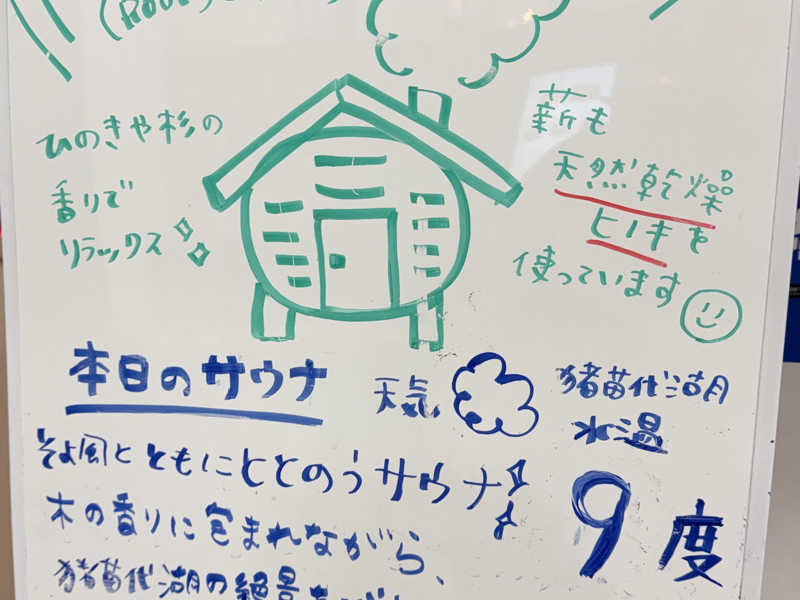 ひのきや杉の
香りで
リラックス
薪も
天然乾燥
ヒノキを
使っています
本日のサウナ
天気
猪苗代湖
水温
9度
そよ風とともにととのうサウナ
木の香りに包まれながら、
猪苗代湖の絶景